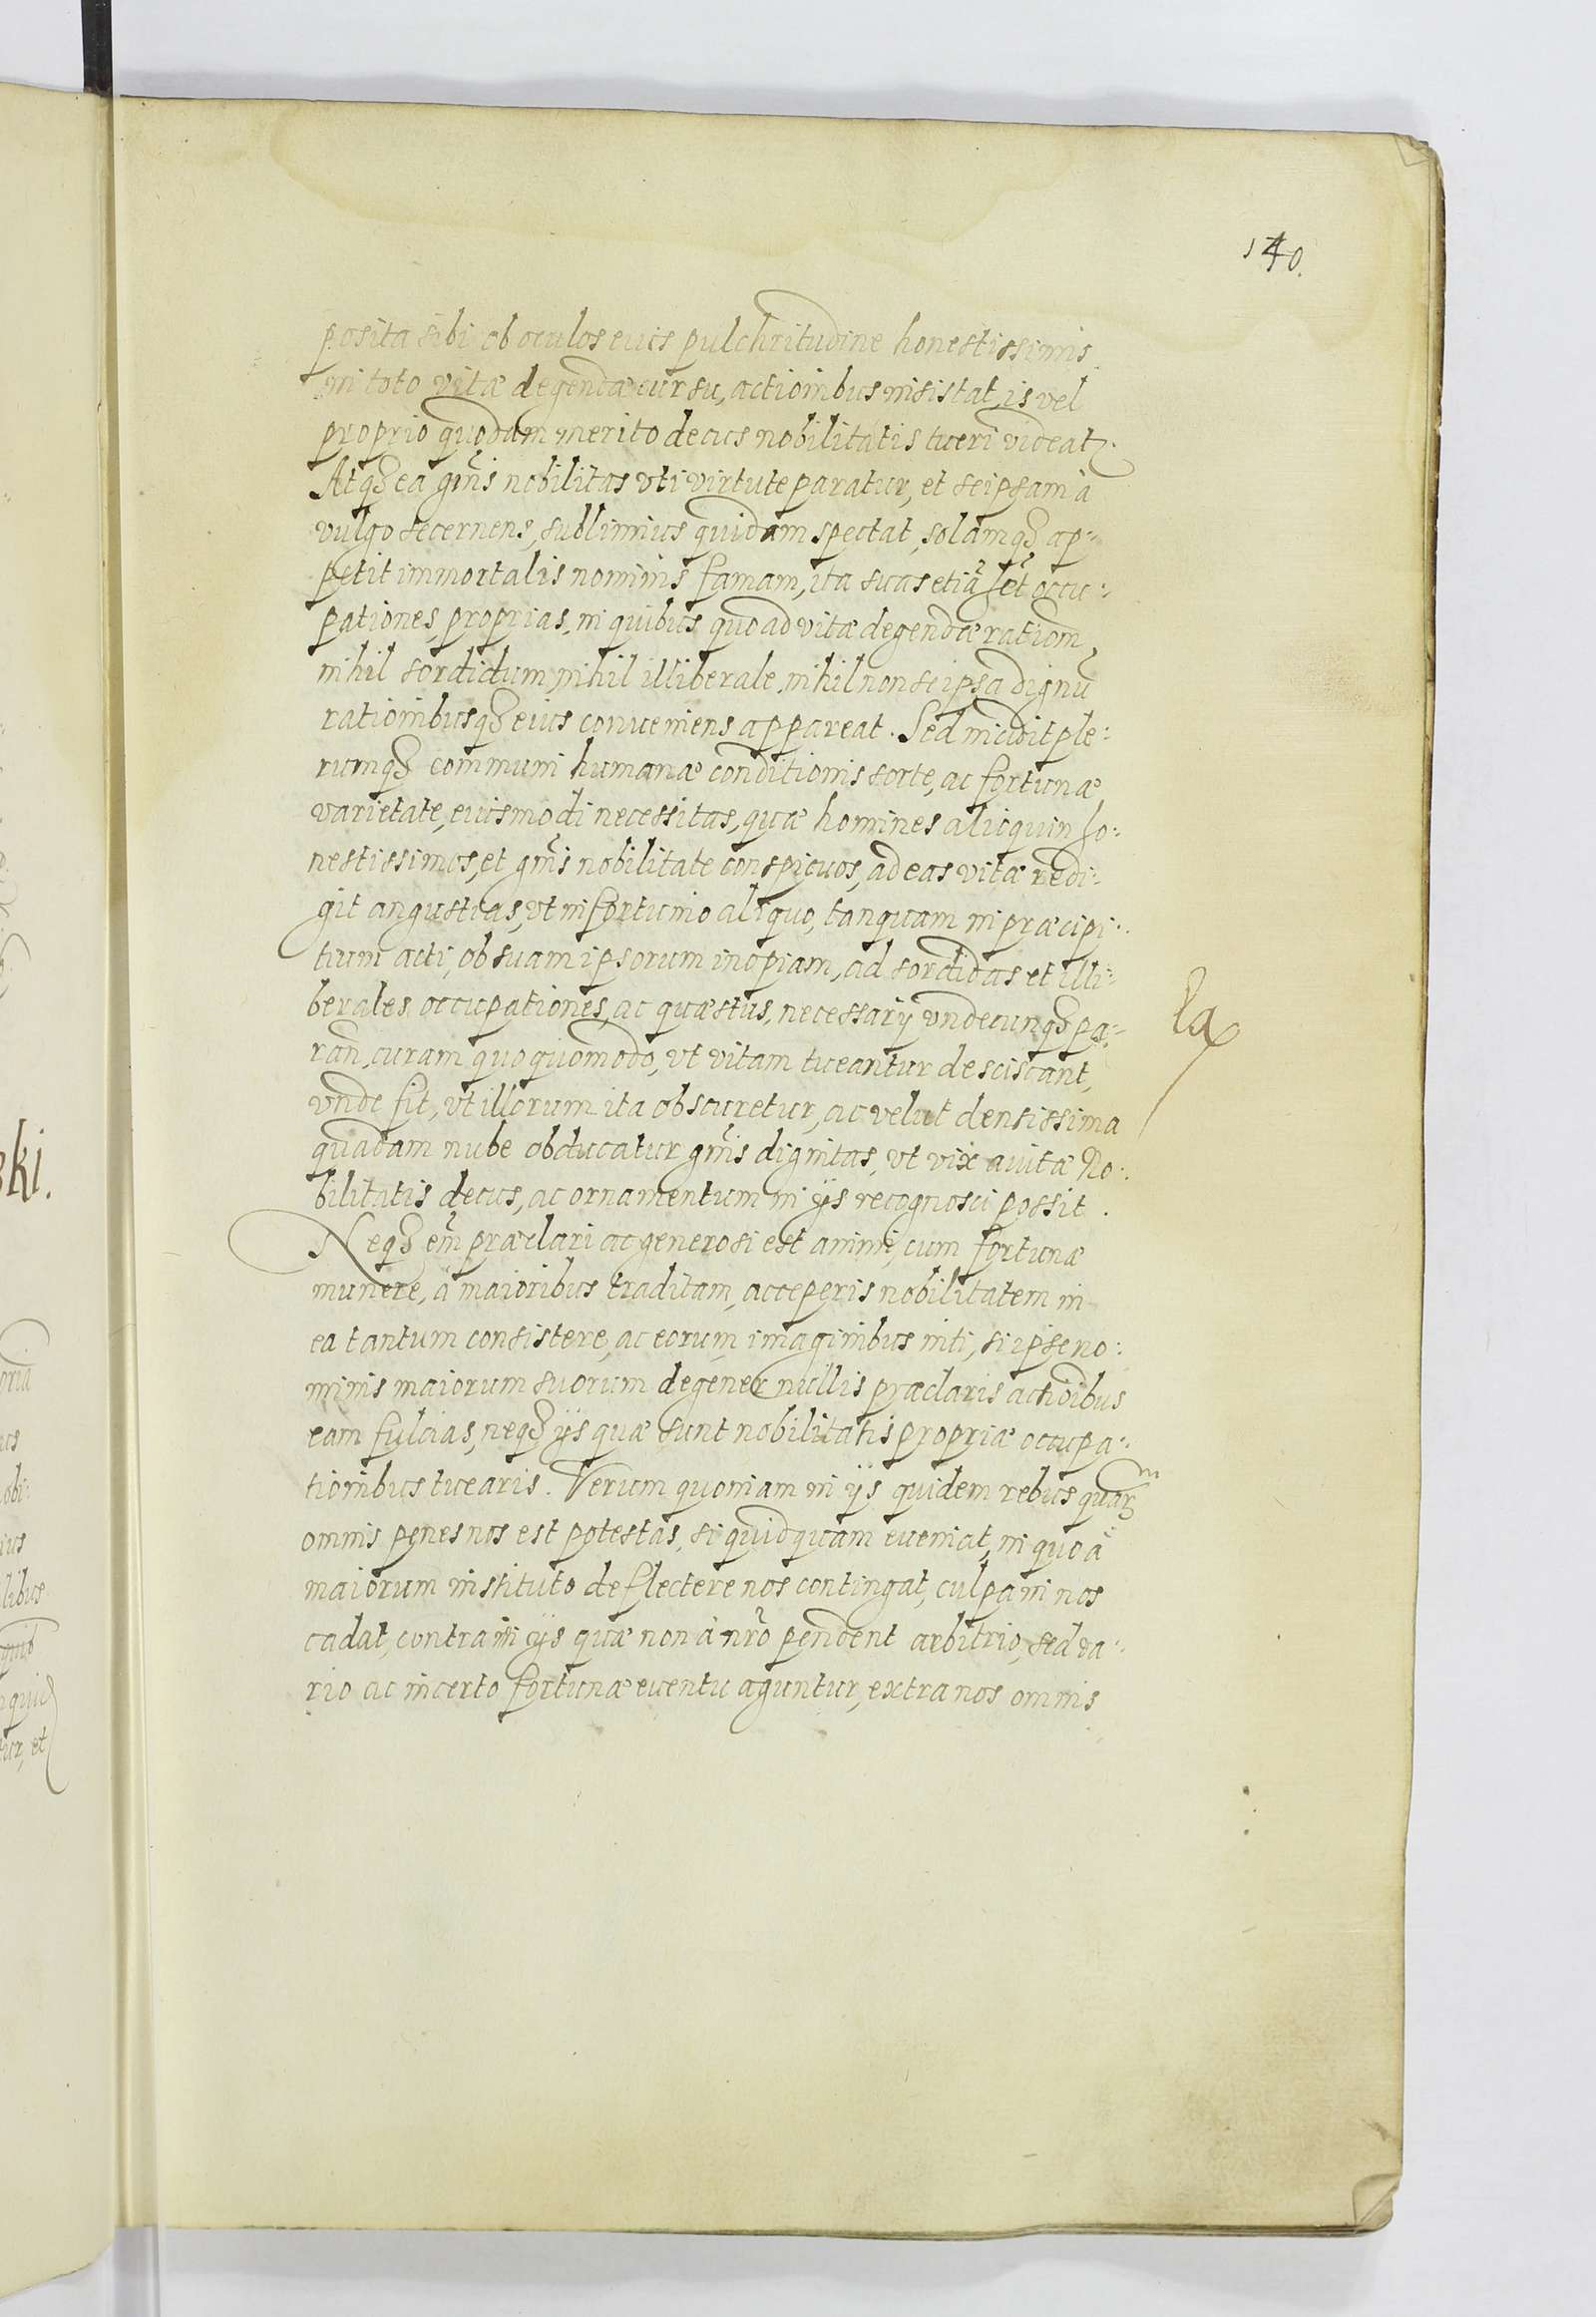 140.
posita sibi ob oculos eius pulchritudine honestissimis
in toto vitæ degendæ cursu, actionibus insistat, is vel
proprio quodam merito decus nobilitatis tueri videatꝛ.
Atqꝫ ea gñis nobilitas vti virtute paratur, et seipsam à
vulgo secernens, sublimius quidam spectat, solamqꝫ ap-
petit immortalis nominis famam, ita suas etiã hẽt occu:
pationes proprias, in quibus quo ad vitæ degendæ rationẽ
nihil sordidum, nihil illiberale, nihil non se ipsa dignũ
rationibusqꝫ eius conueniens appareat. Sed incidit ple:
rumqꝫ communi humanæ conditionis sorte, ac fortunæ
varietate, eiusmodi necessitas, quæ homines alioquin ho:
nestissimos, et gñis nobilitate conspicuos, ad eas vitæ redi:
git angustias, vt infortunio aliquo, tanquam in præcipi:
tium acti, ob suam ipsorum inopiam, ad sordidas et illi:
berales occupationes, ac quæstus, necessarÿ vndecunqꝫ pa:
ran, curam quoquomodo, vt vitam tueantur desciscant,
la
vnde fit, vt illorum ita obscuretur, ac velut densissima
quadam nube obducatur gñis dignitas, vt vix auitæ No:
bilitatis decus, ac ornamentum in ÿs recognosci possit.
Neqꝫ em̃ præclari ac generosi est animi, cum fortunæ
munere, a maioribus traditam, acceperis nobilitatem in
ea tantum consistere, ac eorum imaginibus niti, si ipse no:
minis maiorum suorum degener nullis præclaris actioibus
eam fulcias, neqꝫ ÿs quæ sunt nobilitatis propriæ occupa:
tionibus tuearis. Verum quoniam in ÿs quidem rebus quarꝫ
omnis penes nos est potestas, si quidquam eueniat, in quo à
maiorum instituto deflectere nos contingat, culpa in nos
cadat, contra in ÿs quæ non à nr̃o pendent arbitrio, sed va:
rio ac incerto fortunæ euentu aguntur, extra nos omnis